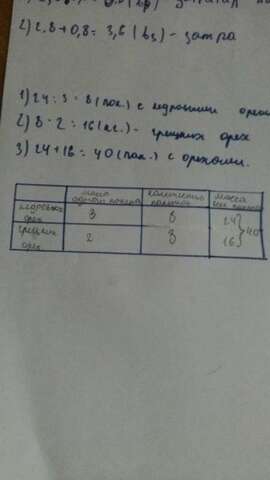 2) 2,8 + 0,8 = 3,6 (
1) 24 : 3 = 8 (пак.) с кедровыми орех
2) 8 · 2 = 16 (кг.) - грецких орех
3) 24 + 16 = 40 (пак.) с орехами.
масса одного пакета
количество пакетов
масса всех пакетов
кедровых орех 3 8 24
грецких орех 2 8 16
40